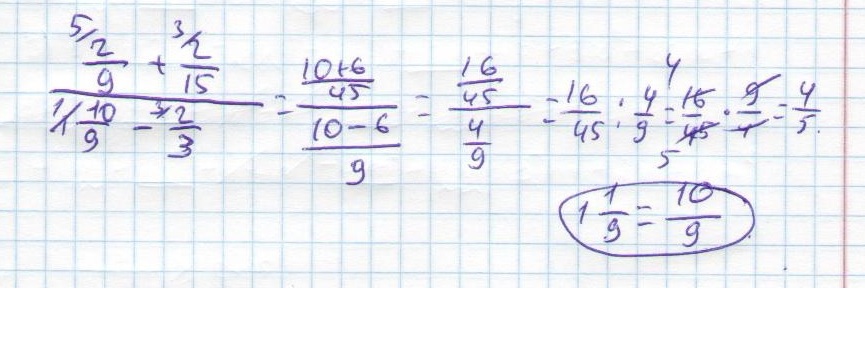 (⁵⁄ 2/9 + ³⁄ 2/15) / (¹⁄ 10/9 − ³⁄ 2/3) = ((10+6)/45) / ((10−6)/9) = (16/45) / (4/9) = 16/45 : 4/9 = 16/45 · 9/4 = 4/5.
4
5
1 1/9 = 10/9